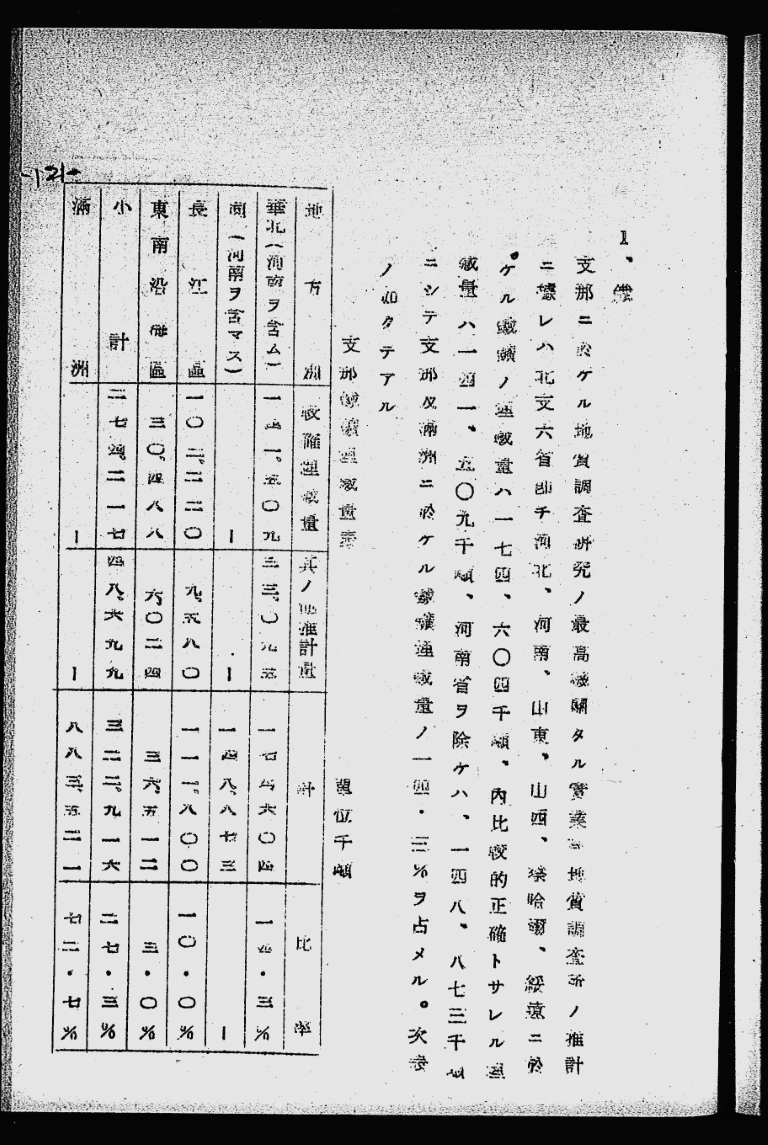 -121-
1、鐵
支那ニ於ケル地質調査研究ノ最高機關タル實業部地質調査所ノ推計
ニ據レハ北支六省卽チ河北、河南、山東、山西、察哈爾、綏遠ニ於
ケル鐵鑛ノ埋藏量ハ一七四、六〇四千噸、內比較的正確トサレル埋
藏量ハ一四一、五〇九千噸、河南省ヲ除ケハ、一四八、八七三千噸
ニシテ支那及滿洲ニ於ケル鐵鑛埋藏量ノ一四・三%ヲ占メル。次表
ノ如クテアル
支那鐵鑛埋藏量表
單位千噸
地方別 較確埋藏量 其ノ他推計量 計 比率
華北(河南ヲ含ム) 一四一、五〇九 三三、〇九五 一七四、六〇四 一四・三%
同(河南ヲ含マス) ー ー 一四八、八七三 ー
長江區 一〇二、二二〇 九、五八〇 一一一、八〇〇 一〇・〇%
東南沿海區 三〇、四八八 六、〇二四 三六、五一二 三・〇%
小計 二七四、二一七 四八、六九九 三二二、九一六 二七・三%
滿洲 ー ー 八八三、五二一 七二・七%